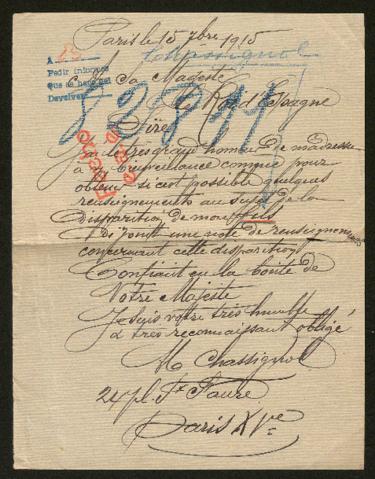 Paris le 15 7bre 1915
Chassignol
A
Pedir informes
que se
Devolver
A sa Majesté
Le Roi d'Espagne
Sire
J'ai le très grand honneur de m'adresser
à sa Bienveillance connue pour
obtenir si c'est possible quelques
renseignements au sujet de la
disparition de mon fils
Ci-joint une note de renseignements
concernant cette disparition
Confiant en la bonté de
Votre Majesté
Je suis votre très humble et
très reconnaissant obligé
M Chassignol
24 pl Fx Faure
Paris XVe